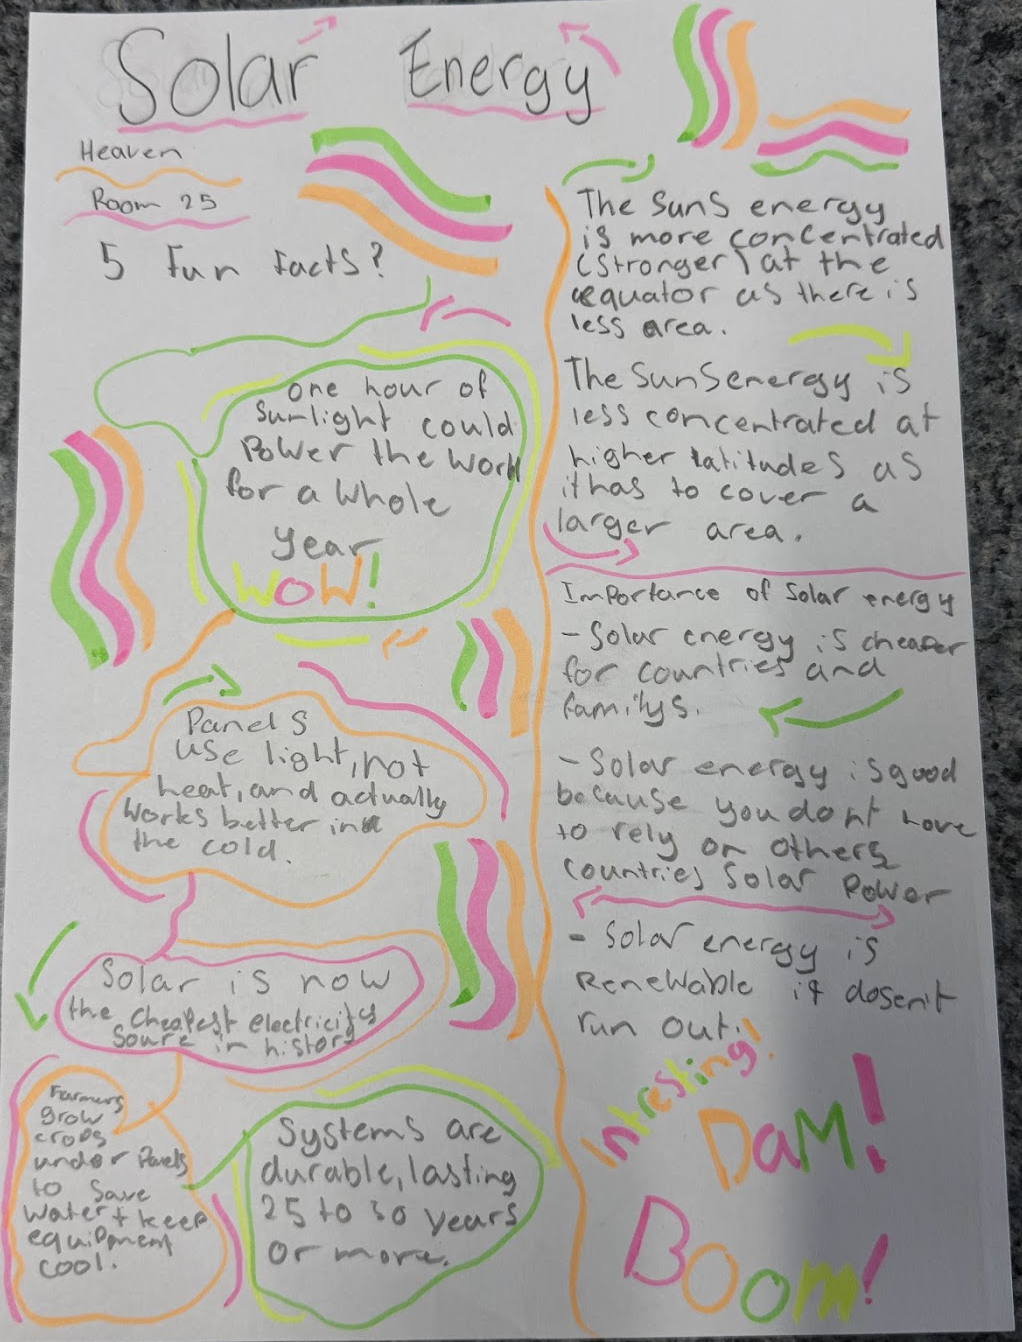 Solar Energy
Heaven
Room 25
5 Fun Facts?
one hour of
Sunlight could
Power the World
for a whole
year
WOW!
Panels
use light, not
heat, and actually
works better in
the cold.
Solar is now
the cheapest electricity
source in history
Farmers
grow
crops
under Panels
to save
water + keep
equipment
cool.
Systems are
durable, lasting
25 to 30 years
or more.
The Suns energy
is more concentrated
(stronger) at the
equator as there is
less area.
The Suns energy is
less concentrated at
higher latitudes as
it has to cover a
larger area.
Importance of Solar energy
- Solar energy is cheaper
for countries and
familys.
- Solar energy is good
because you dont have
to rely on others
countries Solar Power
- Solar energy is
Renewable it dosent
run out.
Intresting!
DaM!
BOOm!